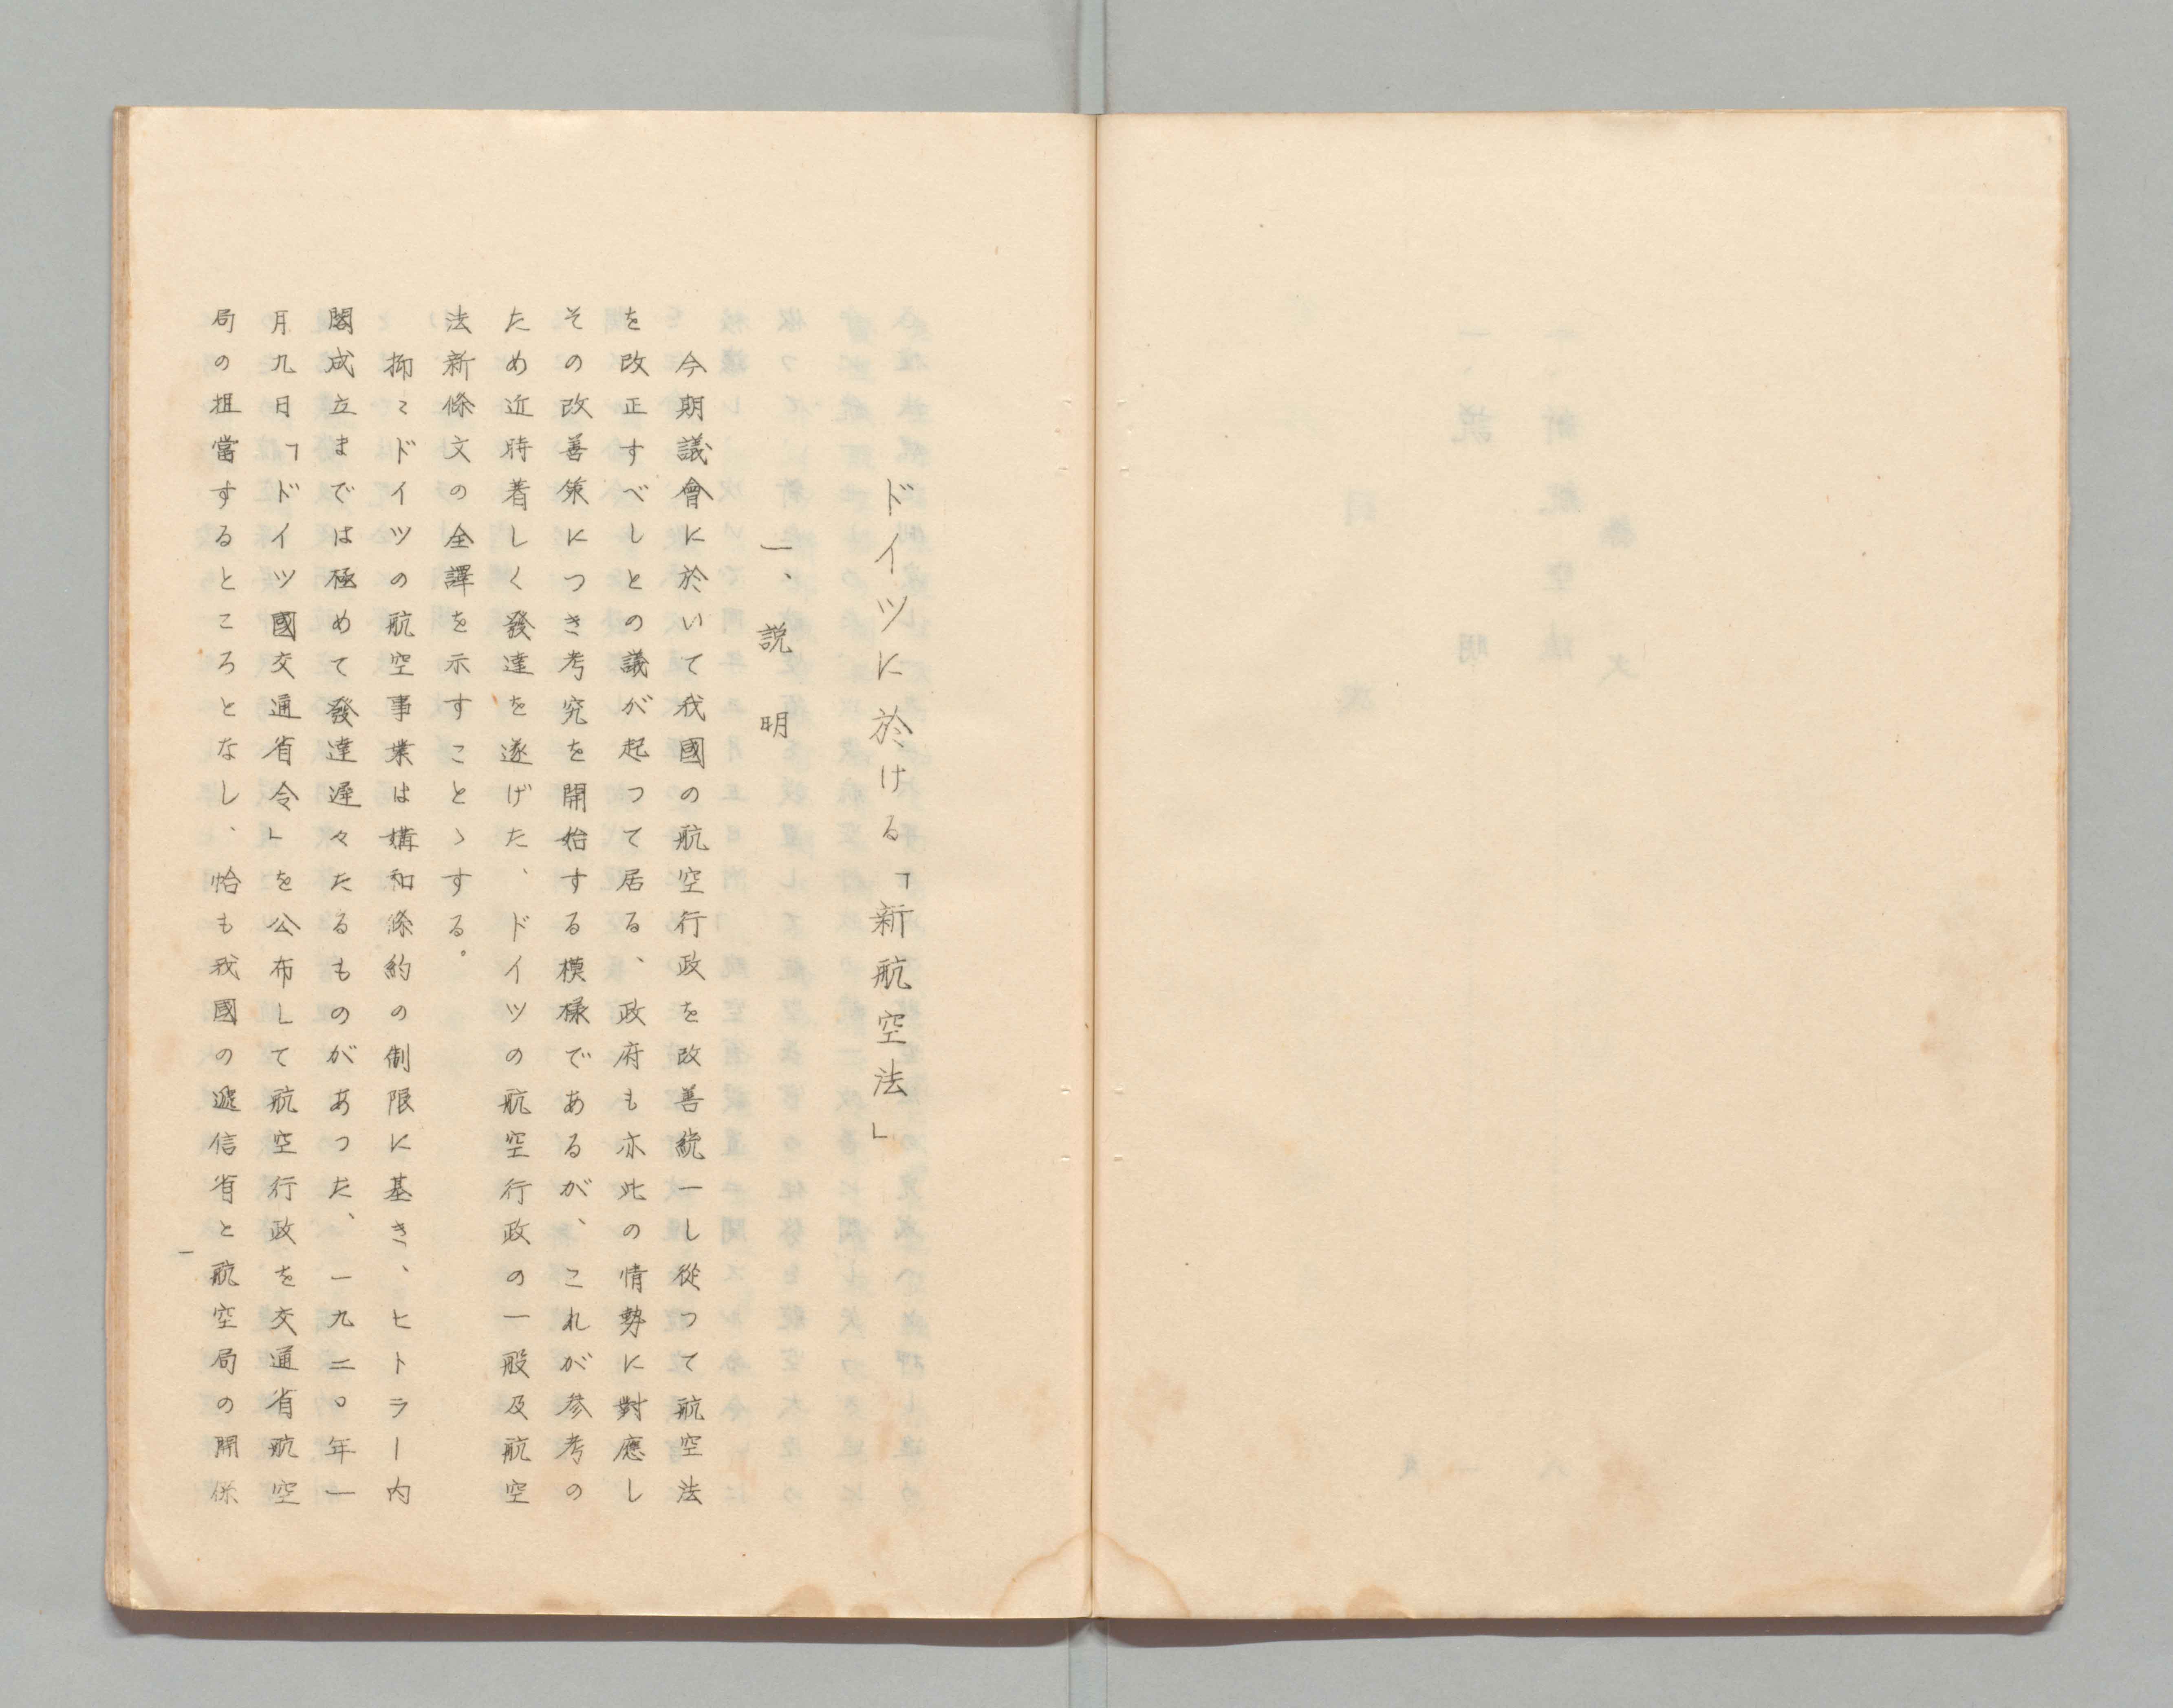 ドイツに於ける「新航空法」
一、説明
今期議會に於いて我國の航空行政を改善統一し從つて航空法
を改正すべしとの議が起つて居る、政府も亦此の情勢に對應し
その改善策につき考究を開始する模様であるが、これが参考の
ため近時著しく發達を遂げた、ドイツの航空行政の一般及航空
法新條文の全譯を示すことゝする。
抑〻ドイツの航空事業は構和條約の制限に基き、ヒトラー内
閣成立までは極めて發達遅々たるものがあつた、一九二〇年一
月九日「ドイツ國交通省令」を公布して航空行政を交通省航空
局の担當するところとなし、恰も我國の遞信省と航空局の関係
一